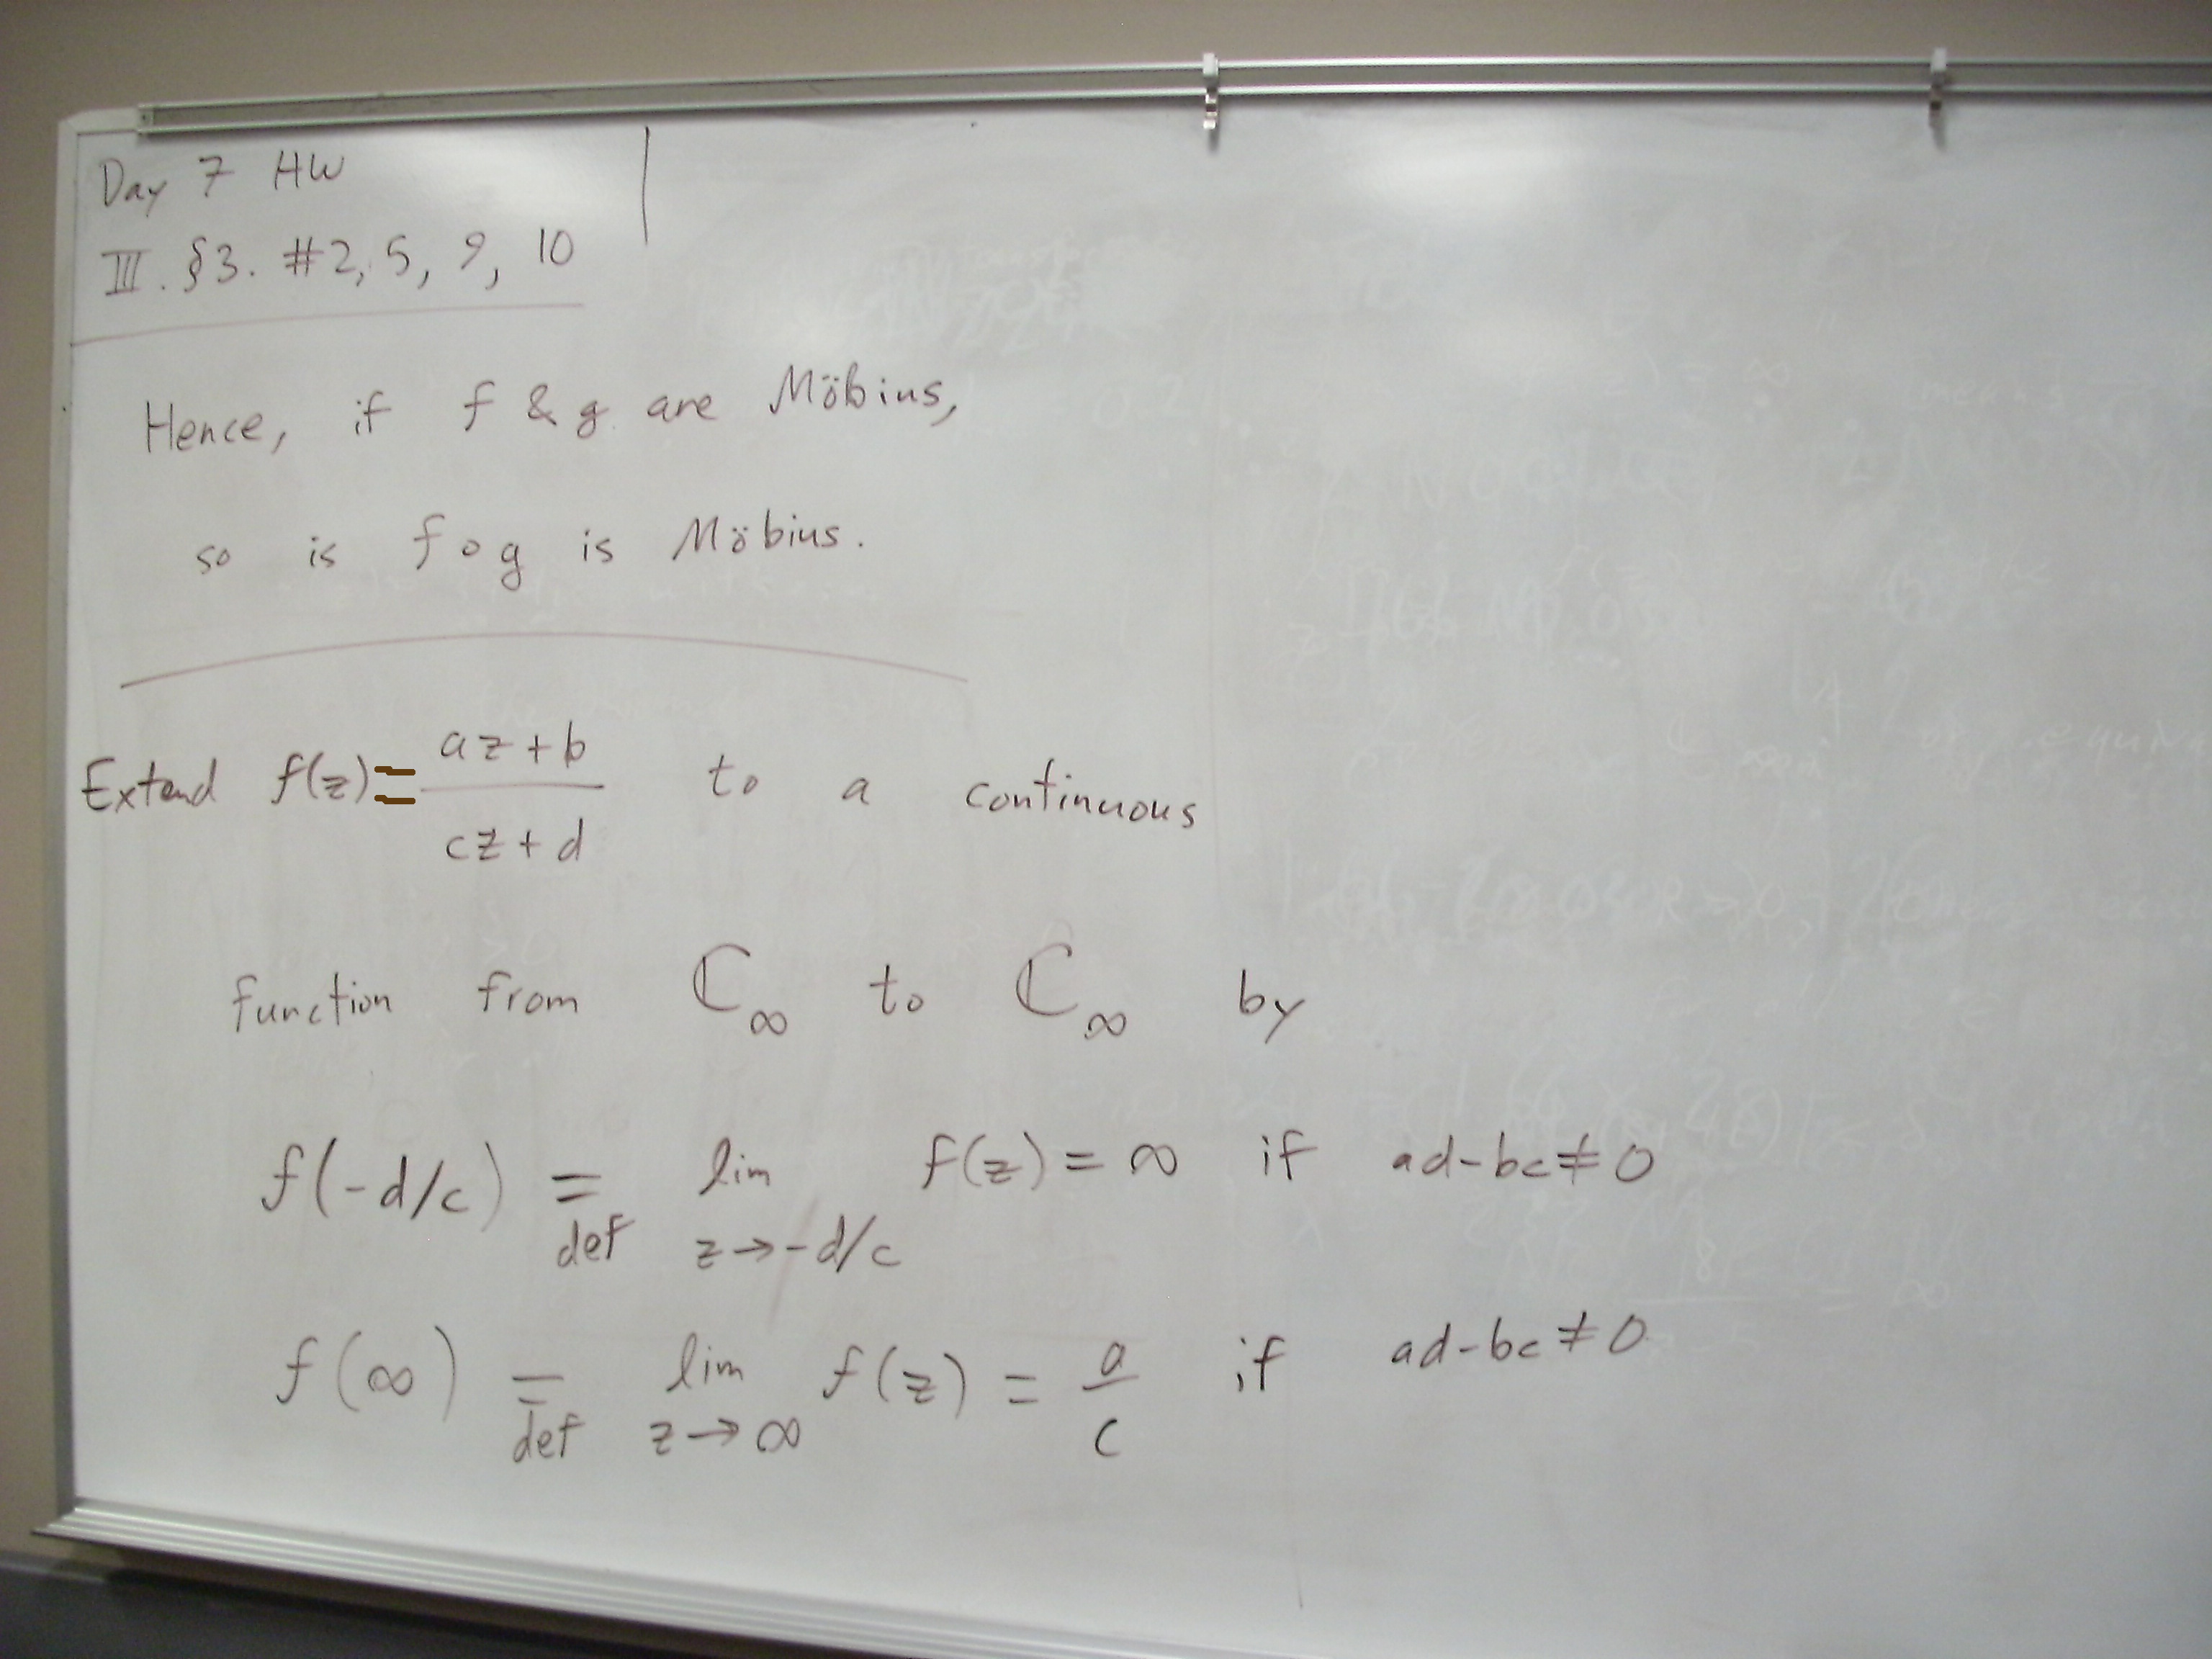 Day 7 HW
III. §3. #2, 5, 9, 10
Hence, if f & g are Möbius,
so is f∘g is Möbius.
Extend f(z) = (az+b)/(cz+d) to a continuous
function from ℂ_∞ to ℂ_∞ by
f(-d/c) =_def lim_{z→-d/c} f(z) = ∞ if ad-bc≠0
f(∞) =_def lim_{z→∞} f(z) = a/c if ad-bc≠0